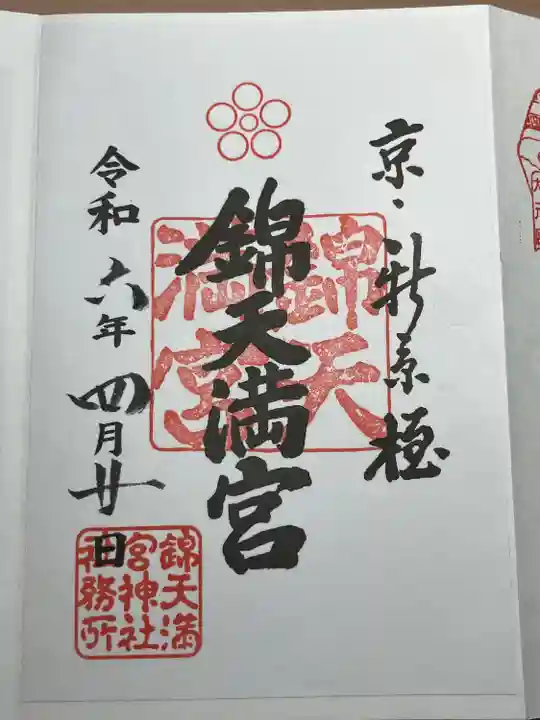 京・新京極
錦天満宮
令和六年四月廿日
錦天
満宮
錦天満
宮神社
神務所